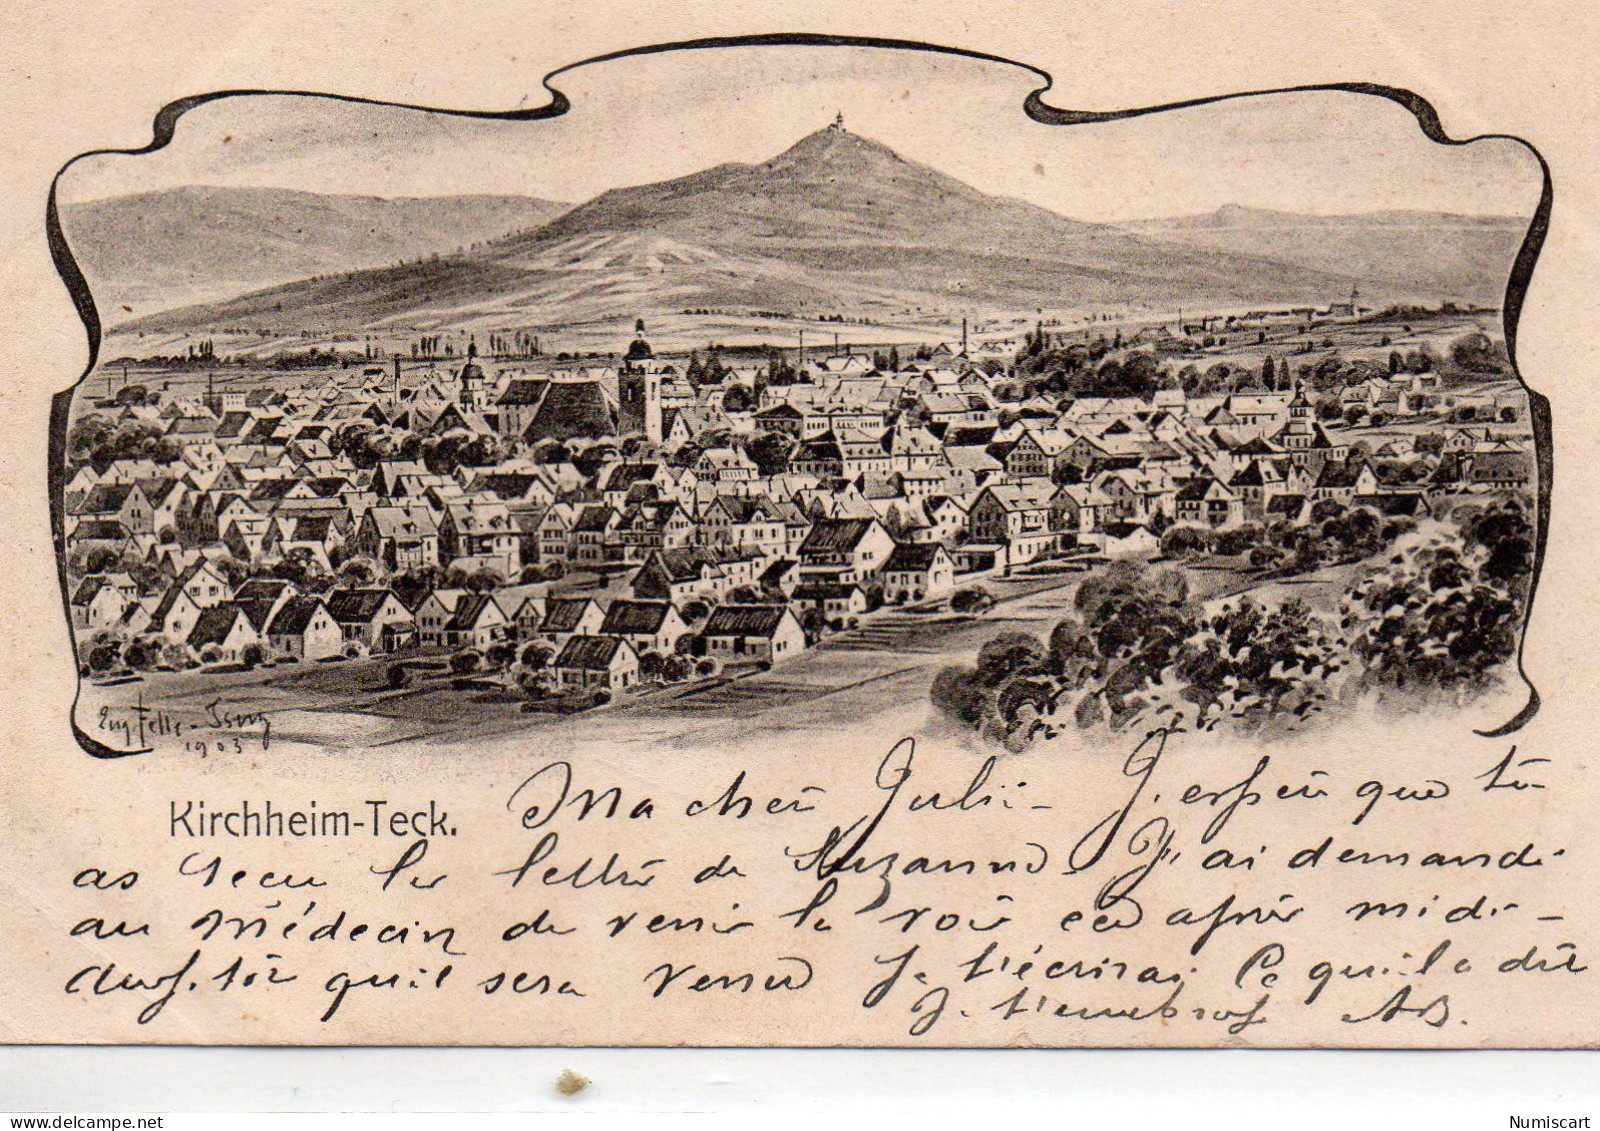 Eug. Felle - Isny
1903
Kirchheim-Teck.
Ma cher Julie - J. espér que tu
as recu la lettre de Suzanne J'ai demande
au Médecin de venir la voir ce après midi -
ausitôt qu'il sera venu Je t'écrirai Ce qu'il a dit
J. t'embrasse AB.
Numiscart